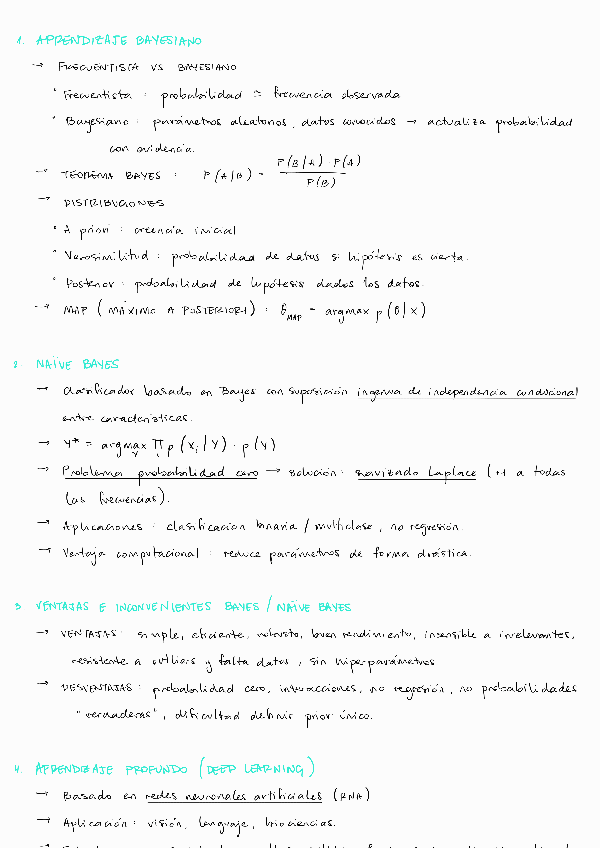 1. APRENDIZAJE BAYESIANO
→ FRECUENTISTA VS BAYESIANO
· Frecuentista : probabilidad ≈ frecuencia observada
· Bayesiano : parámetros aleatorios, datos conocidos → actualiza probabilidad
con evidencia.
→ TEOREMA BAYES : P(A|B) = P(B|A) · P(A) / P(B)
→ DISTRIBUCIONES
· A priori : creencia inicial
· Verosimilitud : probabilidad de datos si hipótesis es cierta.
· Posterior : probabilidad de hipótesis dados los datos.
→ MAP (MÁXIMO A POSTERIORI) : θ_MAP = argmax p(θ|X)
2 NAÏVE BAYES
→ Clasificador basado en Bayes con suposición ingenua de independencia condicional
entre características.
→ Y* = argmax_Y ∏_i p(X_i|Y) · p(Y)
→ Problema probabilidad cero → solución : suavizado Laplace (+1 a todas
las frecuencias).
→ Aplicaciones : clasificación binaria / multiclase, no regresión.
→ Ventaja computacional : reduce parámetros de forma drástica.
3 VENTAJAS E INCONVENIENTES BAYES / NAÏVE BAYES
→ VENTAJAS : simple, eficiente, robusto, buen rendimiento, insensible a irrelevantes,
resistente a outliers y falta datos, sin hiperparámetros
→ DESVENTAJAS : probabilidad cero, interacciones, no regresión, no probabilidades
"verdaderas", dificultad definir prior único.
4. APRENDIZAJE PROFUNDO (DEEP LEARNING)
→ Basado en redes neuronales artificiales (RNA)
→ Aplicación : visión, lenguaje, biociencias.